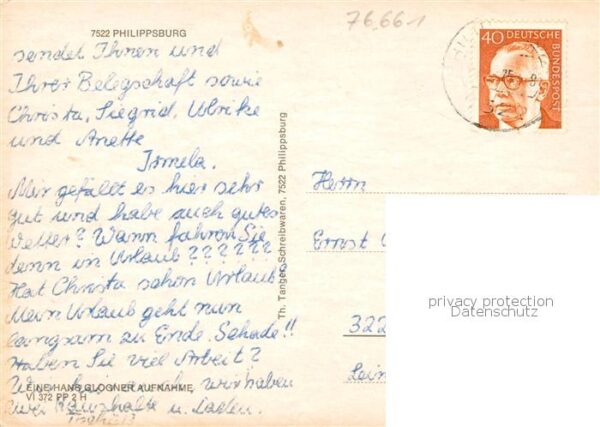 7522 PHILIPPSBURG
76.661
sendet Ihnen und
Ihrer Belegschaft sowie
Christa, Siegrid, Ulrike
und Anette
Irmela.
Mir gefällt es hier sehr
gut und habe auch gutes
Wetter? Wann fahren Sie
denn in Urlaub??????
Hat Christa schon Urlaub?
Mein Urlaub geht nun
langsam zu Ende. Schade!!
Haben Sie viel Arbeit?
wir haben
zwei Haushalte u. Laden.
EINE HANS GLOGNER AUFNAHME
VI 372 PP 2 H
Th. Tanger, Schreibwaren, 7522 Philippsburg
40 DEUTSCHE BUNDESPOST
Herrn
Ernst
322
privacy protection
Datenschutz